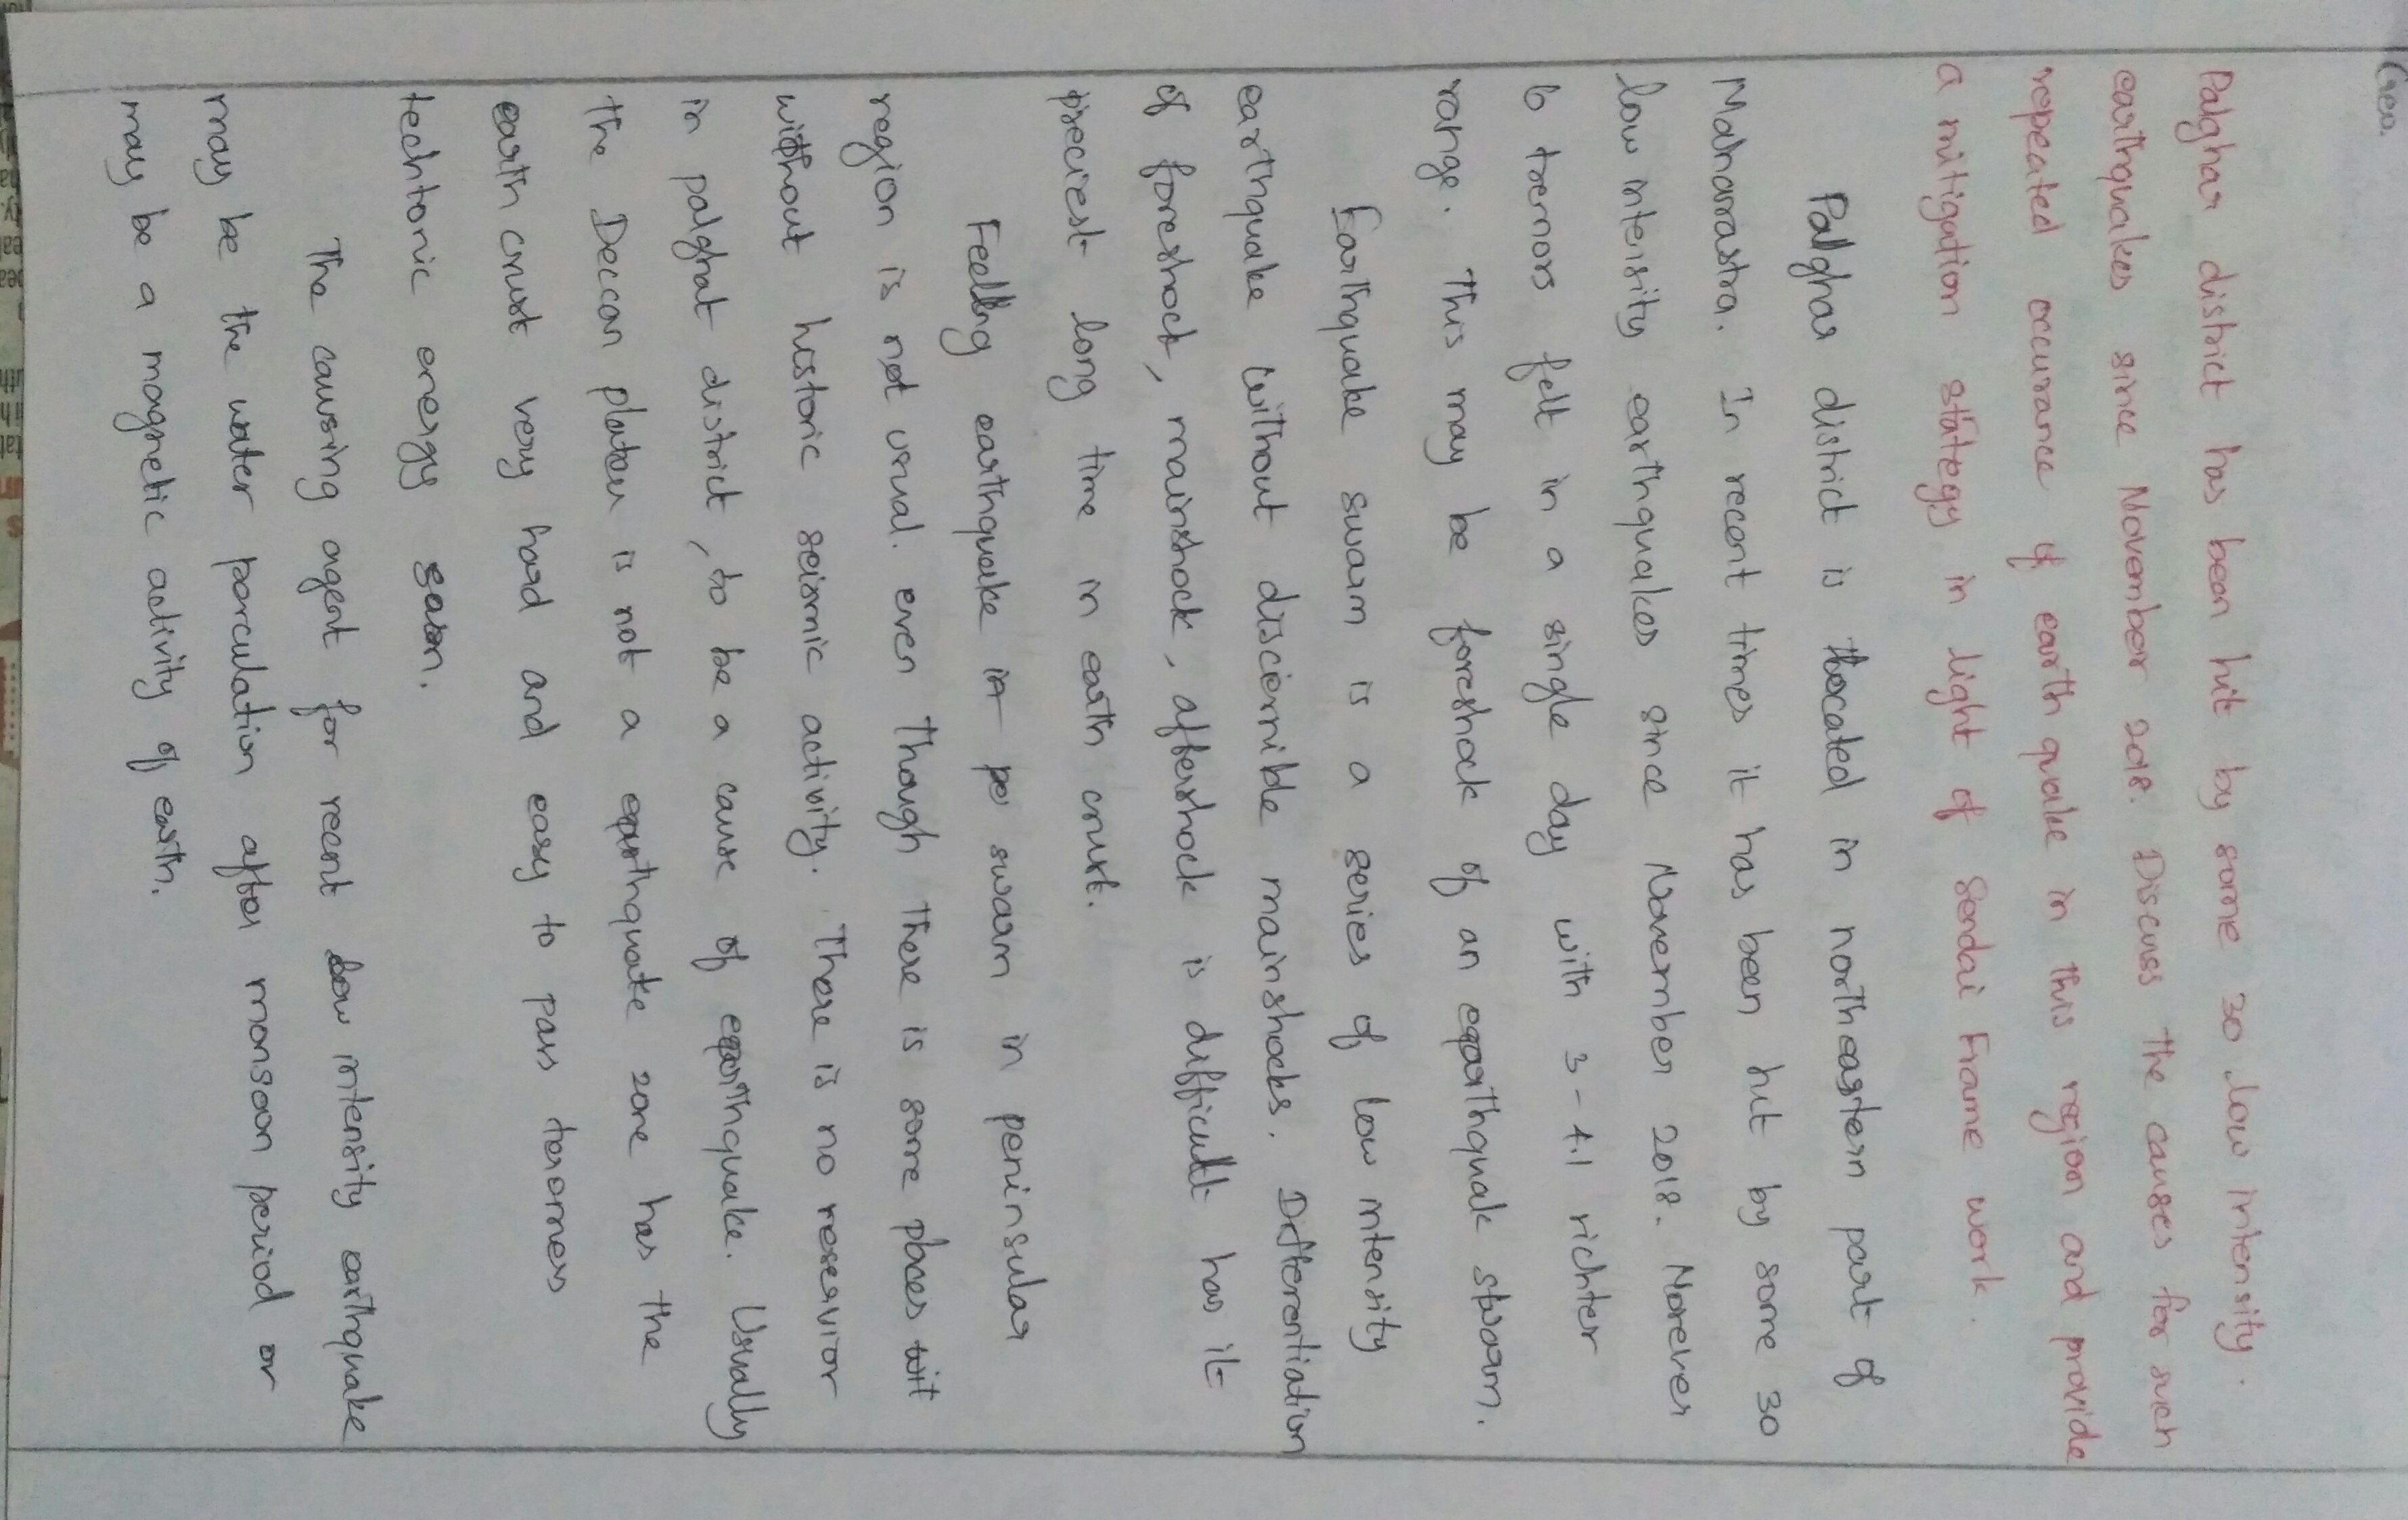 Geo.
Palghar district has been hit by some 30 low intensity.
earthquakes since November 2018. Discuss the causes for such
repeated occurance of earth quake in this region and provide
a mitigation stategy in light of Sendai Frame work.
Palghar district is located in north eastern part of
Maharastra. In recent times it has been hit by some 30
low intensity earthquakes since November 2018. Norever
6 tremors felt in a single day with 3-4.1 richter
range. This may be foreshock of an earthquak swarm.
Earthquake swarm is a series of low intensity
earthquake without discernible mainshocks. Differentiation
of foreshock, mainshock, aftershock is difficult has it
preciest long time in earth crust.
Feeling earthquake in swarm in peninsular
region is not usual. even Though There is some places
without historic seismic activity. There is no reservior
in palghat district, to be a cause of earthquake. Usually
the Deccan plateau is not a earthquate zone has the
earth crust very hard and easy to pass
techtonic energy
The causing agent for recent low intensity earthquake
may be the water parculation after monsoon period or
may be a magnetic activity of earth.